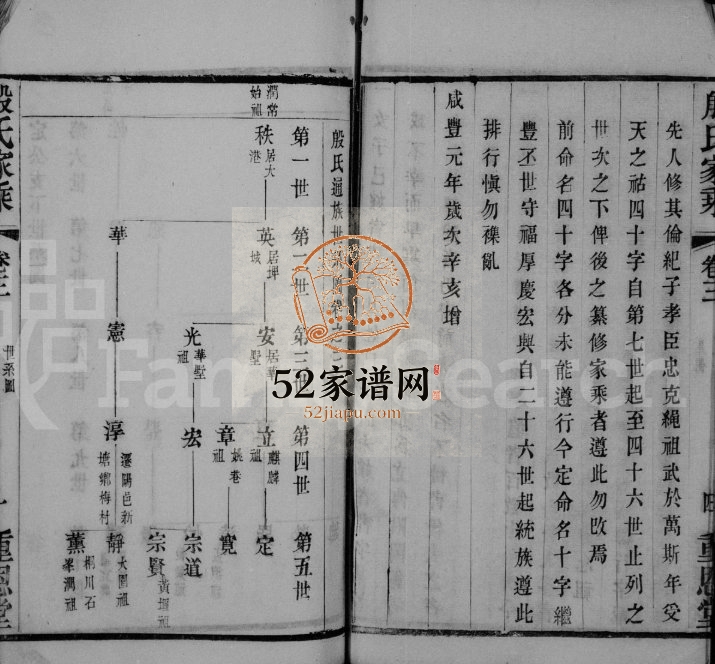 殷氏家乘
卷三
重恩堂
先人修其倫紀子孝臣忠克繩祖武於萬斯年受
天之祜四十字自第七世起至四十六世止列之
世次之下俾後之纂修家乘者遵此勿改焉
前命名四十字各分未能遵行今定命名十字繼
豐丕世守福厚慶宏與自二十六世起統族遵此
排行慎勿襍亂
咸豐元年歲次辛亥增
殷氏通族世
第一世
第三世
第四世
第五世
潤常始祖
秩 居大港
英 居埤城
安 居華墅
立 麒麟祖
定
章 姚巷祖
寛
光 華墅祖
宏
宗道
宗賢 黃堰祖
華
憲
淳 遷陽邑新塘鄉梅村
靜 大園祖
薰 桐川石峯澗祖
殷氏家乘
卷三
世系圖
一
重恩堂
52家谱网
52jiapu.com